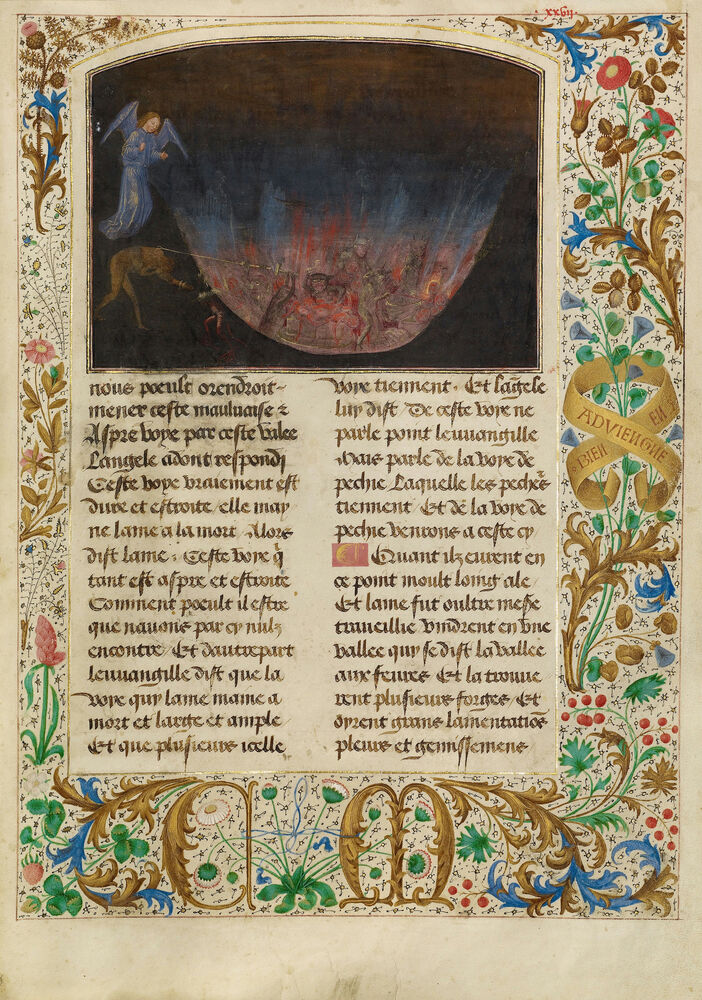 xxvij
nous poeult orendroit
mener ceste mauluaise &
Aspre voye par ceste valee
Langele adont respondi
Ceste voye vraiement est
dure et estroite elle may
ne lame a la mort. Alors
dist lame. Ceste voye q̄
tant est aspre et estroite
Comment poeult il estre
que nauons par cy nulz
encontre. Et dautrepart
leuuangille dist que la
voye qui lame maine a
mort et large et ample
Et que plusieurs icelle
voye tiennent. Et lāgele
luy dist. De ceste voye ne
parle point leuuangille
Mais parle de la voye de
pechie Laquelle les pechēs
tiennent. Et de la voye de
pechie venrons a ceste cy
Quant ilz eurent en
ce point moult loing ale
Et lame fut oultre
traueillie vindrent en vne
vallee qui se dist la vallee
aux feures. Et la trouue
rent plusieurs forges. Et
oyrent grans lamentatiōs
pleurs et gemissemens
BIEN EN
ADVIENGNE
C M